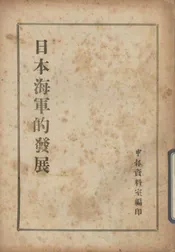 日本海軍的發展
申報資料室編印